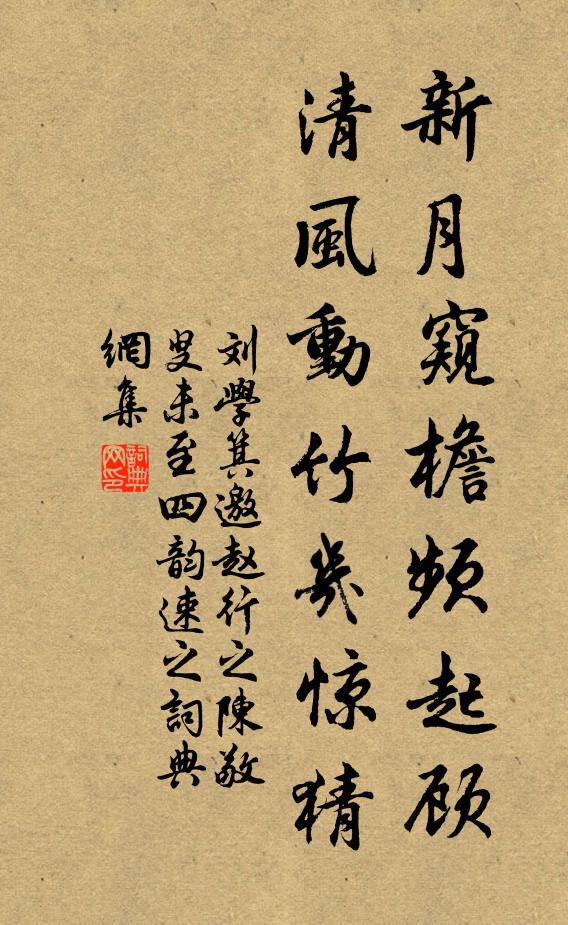 新月窺檐频起顾
清風動竹幾惊猜
刘學箕邀赵行之陳敬
叟未至四韵速之詞典
網集
詞典
网印